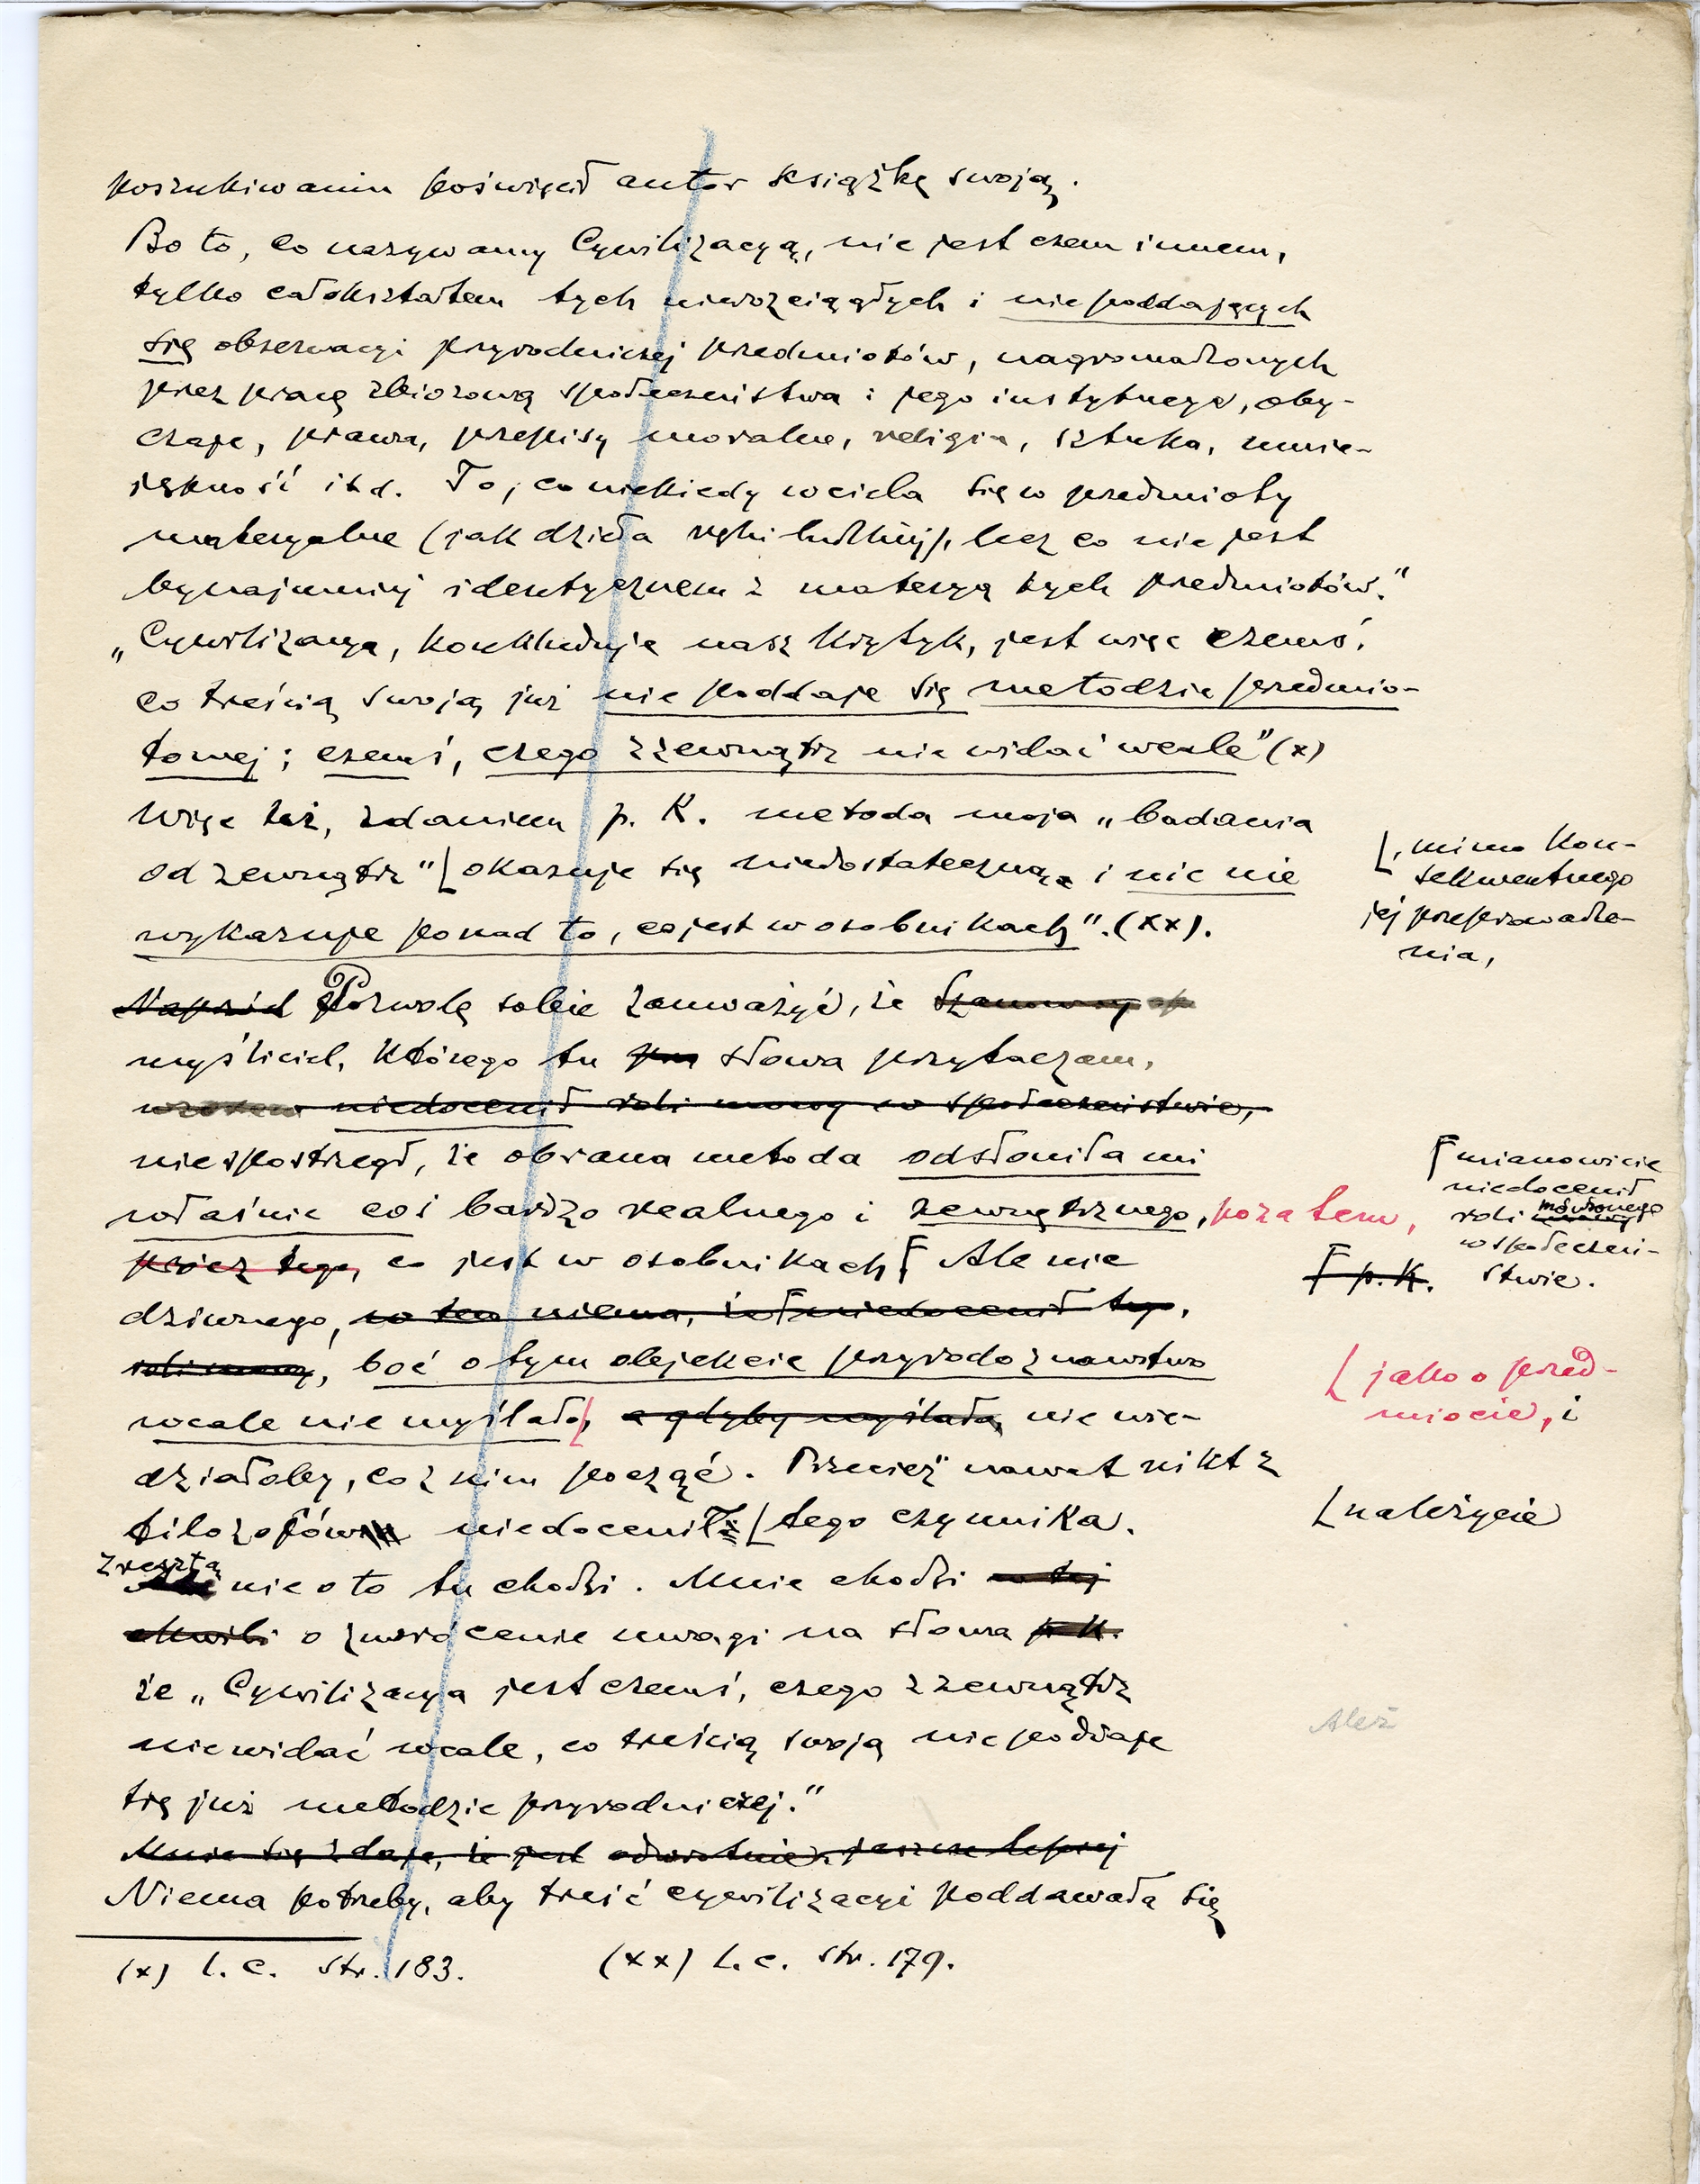 poszukiwaniu poświęcił autor książkę swoją.
Bo to, co nazywamy Cywilizacyą, nie jest czem innem,
tylko całokształtem tych nierozciągłych i nie poddających
się obserwacyi przyrodniczej przedmiotów, nagromadzonych
przez pracę zbiorową społeczeństwa i jego instytucye, oby-
czaje, prawa, przepisy moralne, religia, sztuka, umie-
jętność itd. To, co niekiedy wciela się w przedmioty
materyalne (jak dzieła ręki ludzkiej), lecz co nie jest
bynajmniej identycznem z materyą tych przedmiotów."
„Cywilizacya, konkluduje nasz krytyk, jest więc czemś,
co treścią swoją już nie poddaje się metodzie przedmio-
towej; czemś, czego zzewnątrz nie widać wcale" (x)
Więc też, zdaniem p. K. metoda moja „badania
od zewnątrz" [ okazuje się niedostateczną i nic nie
[, mimo kon-
sekwentnego
jej przeprowadze-
nia,
wykazuje ponad to, co jest w osobnikach". (xx).
Naprzód Pozwolę sobie zauważyć, że Szanowny
myśliciel, którego tu słowa przytaczam,
niedocenił roli mowy w społeczeństwie,
nie spostrzegł, że obrana metoda odsłoniła mi
właśnie coś bardzo realnego i zewnętrznego, poza tem,
prócz tego, co jest w osobnikach [ Ale nic
[ mianowicie
niedocenił
roli mówionego
w społeczeń-
stwie.
[ p. K.
dziwnego, w tem niema, że [ niedocenił tego,
roli mowy, boć o tym objekcie przyrodoznawstwo
wcale nie myślało [, a gdyby myślało, nie wie-
[ jako o przed-
miocie, i
działoby, co z nim począć. Przecież nawet nikt z
filozofów niedocenił [ tego czynnika.
[ należycie
Zresztą
Ale nie o to tu chodzi. Mnie chodzi w tej
chwili o zwrócenie uwagi na słowa p. K.
że „Cywilizacya jest czemś, czego z zewnątrz
nie widać wcale, co treścią swoją nie poddaje
Ależ
się już metodzie przyrodniczej."
Mnie się zdaje, że jest odwrotnie, jeszcze lepiej
Niema potrzeby, aby treść cywilizacyi poddawała się
(x) l. c. str. 183. (xx) l. c. str. 179.